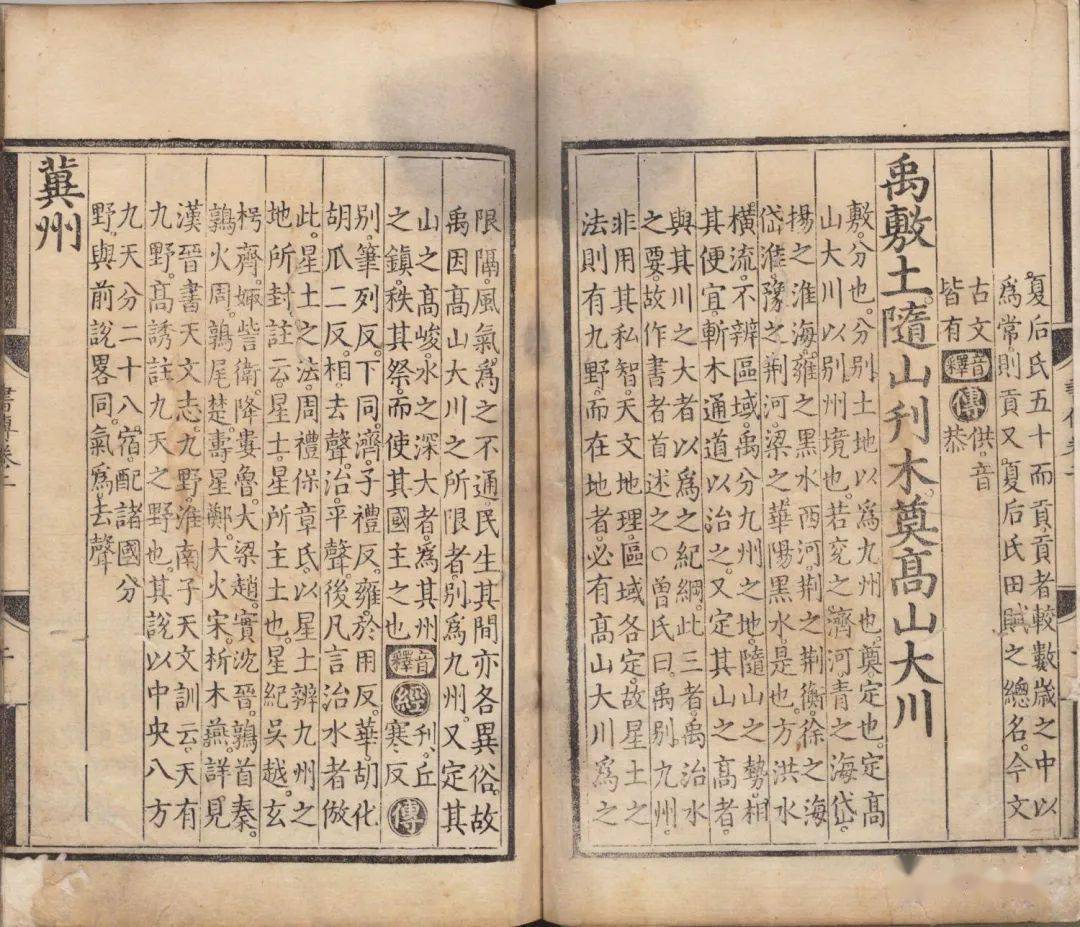 夏后氏五十而貢貢者較數歲之中以
爲常則貢又夏后氏田賦之總名今文
古文
皆有
音釋
傳供音
恭
禹敷土隨山刊木奠高山大川
敷分也分别土地以爲九州也奠定也定高
山大川以别州境也若兖之濟河青之海岱
揚之淮海雍之黑水西河荆之荆衡徐之海
岱淮豫之荆河梁之華陽黑水是也方洪水
橫流不辨區域禹分九州之地隨山之勢相
其便宜斬木通道以治之又定其山之高者
與其川之大者以爲之紀綱此三者禹治水
之要故作書者首述之○曾氏曰禹别九州
非用其私智天文地理區域各定故星土之
法則有九野而在地者必有高山大川爲之
限隔風氣爲之不通民生其間亦各異俗故
禹因高山大川之所限者别爲九州又定其
山之高峻水之深大者爲其州
之鎮秩其祭而使其國主之也
音釋
經刊丘
寒反傳
别筆列反下同濟子禮反雍於用反華胡化
胡瓜二反相去聲治平聲後凡言治水者倣
此星土之法周禮保章氏以星土辨九州之
地所封註云星土星所主土也星紀吳越玄
枵齊娵訾衛降婁魯大梁趙實沈晉鶉首秦
鶉火周鶉尾楚壽星鄭大火宋析木燕詳見
漢晉書天文志九野淮南子天文訓云天有
九野高誘註九天之野也其說以中央八方
九天分二十八宿配諸國分
野與前說畧同氣爲去聲
冀州
書傳卷二